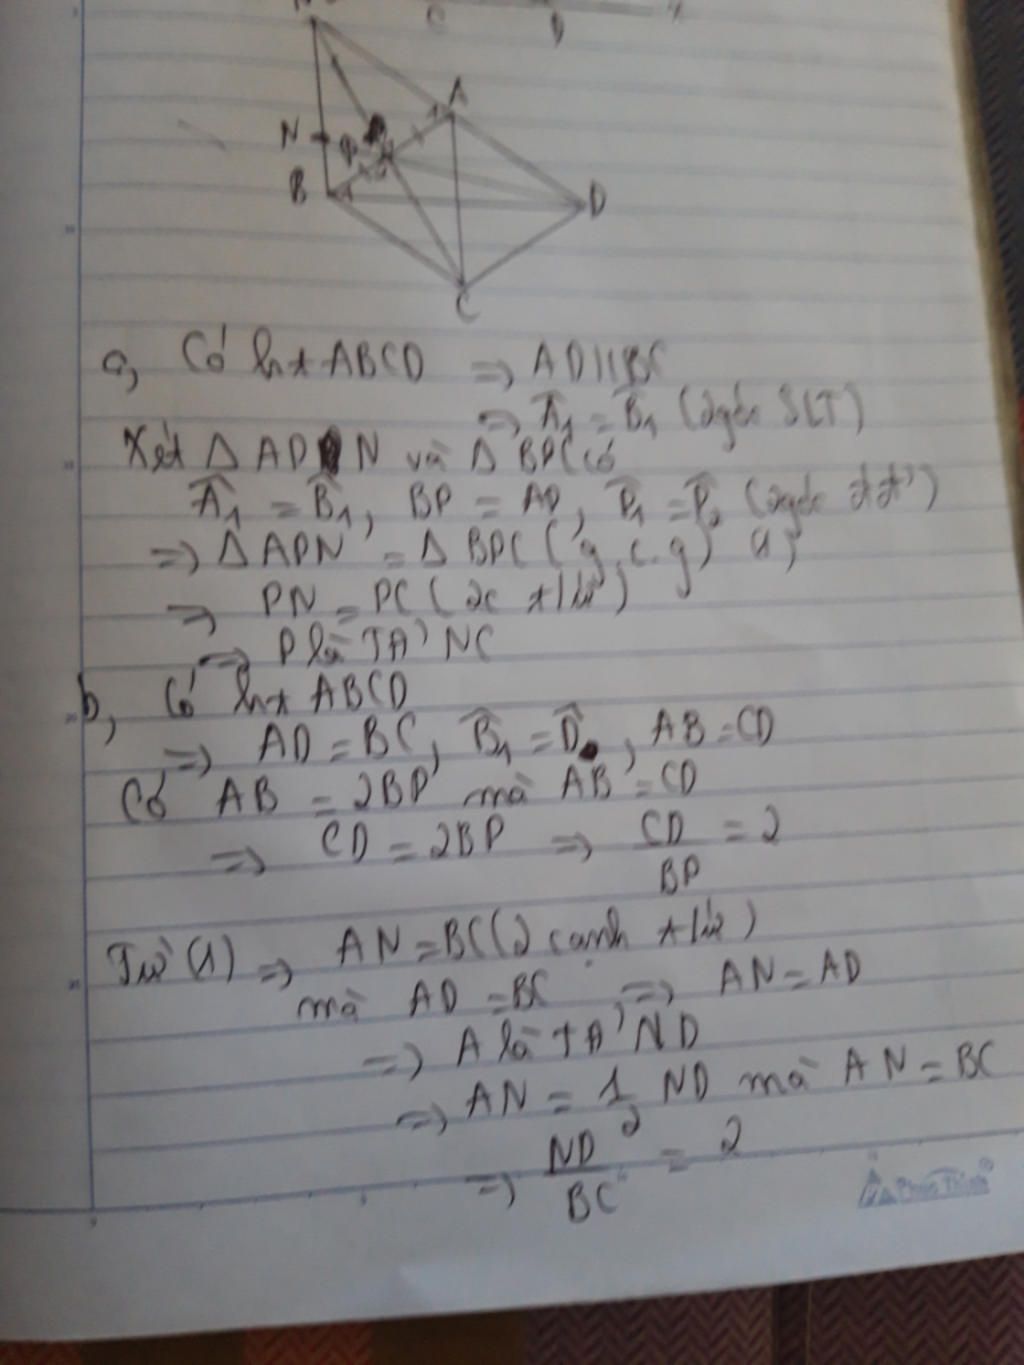 C
D
A
N
P
B
D
C
a, Có hbh ABCD => AD//BC
=> A1 = B1 (2góc SLT)
Xét Δ AP N và Δ BPC có
A1 = B1, BP = AP, P1 = P2 (2góc đđ)
=> Δ APN = Δ BPC (g.c.g)
=> PN = PC (2c t/ứ)
=> P là TĐ NC
b, Có hbh ABCD
=> AD = BC, B1 = D, AB = CD
Có AB = 2BP mà AB = CD
=> CD = 2BP => CD/BP = 2
Từ (1) => AN = BC (2 cạnh t/ứ)
mà AD = BC => AN = AD
=> A là TĐ ND
=> AN = 1/2 ND mà AN = BC
=> ND/BC = 2